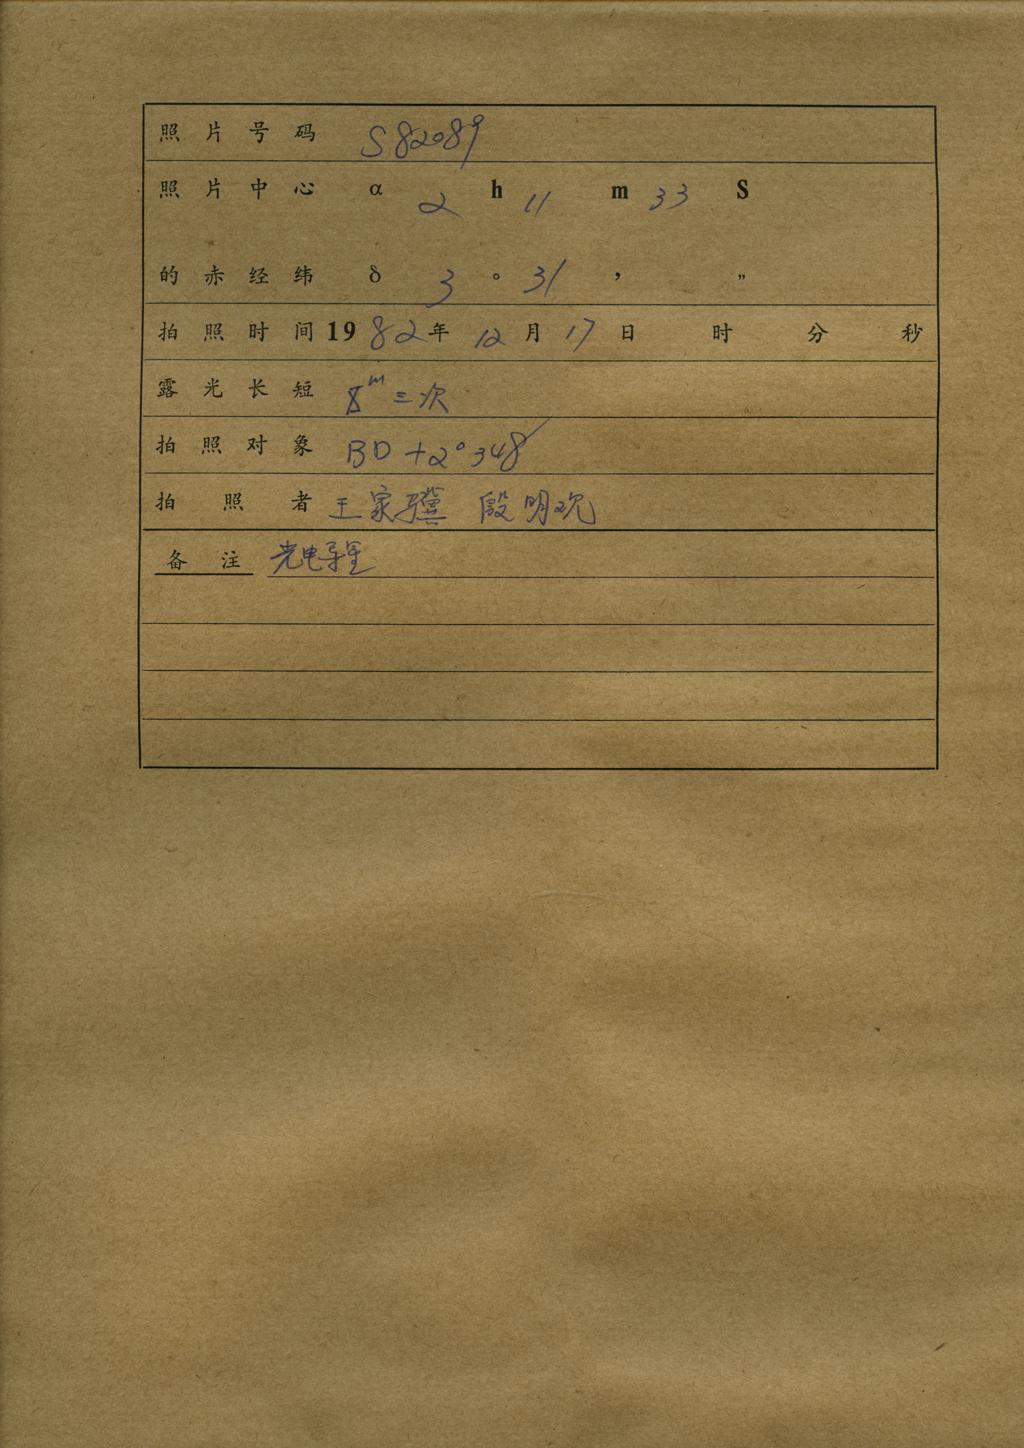 照片号码 S82089
照片中心 α 2 h 11 m 33 S
的赤经纬 δ 3 ° 31 ′ ″
拍照时间 1982年 12月 17日 时 分 秒
露光长短 8m 三次
拍照对象 BD+2°348
拍照者 王家骥 殷明观
备注 光电导星